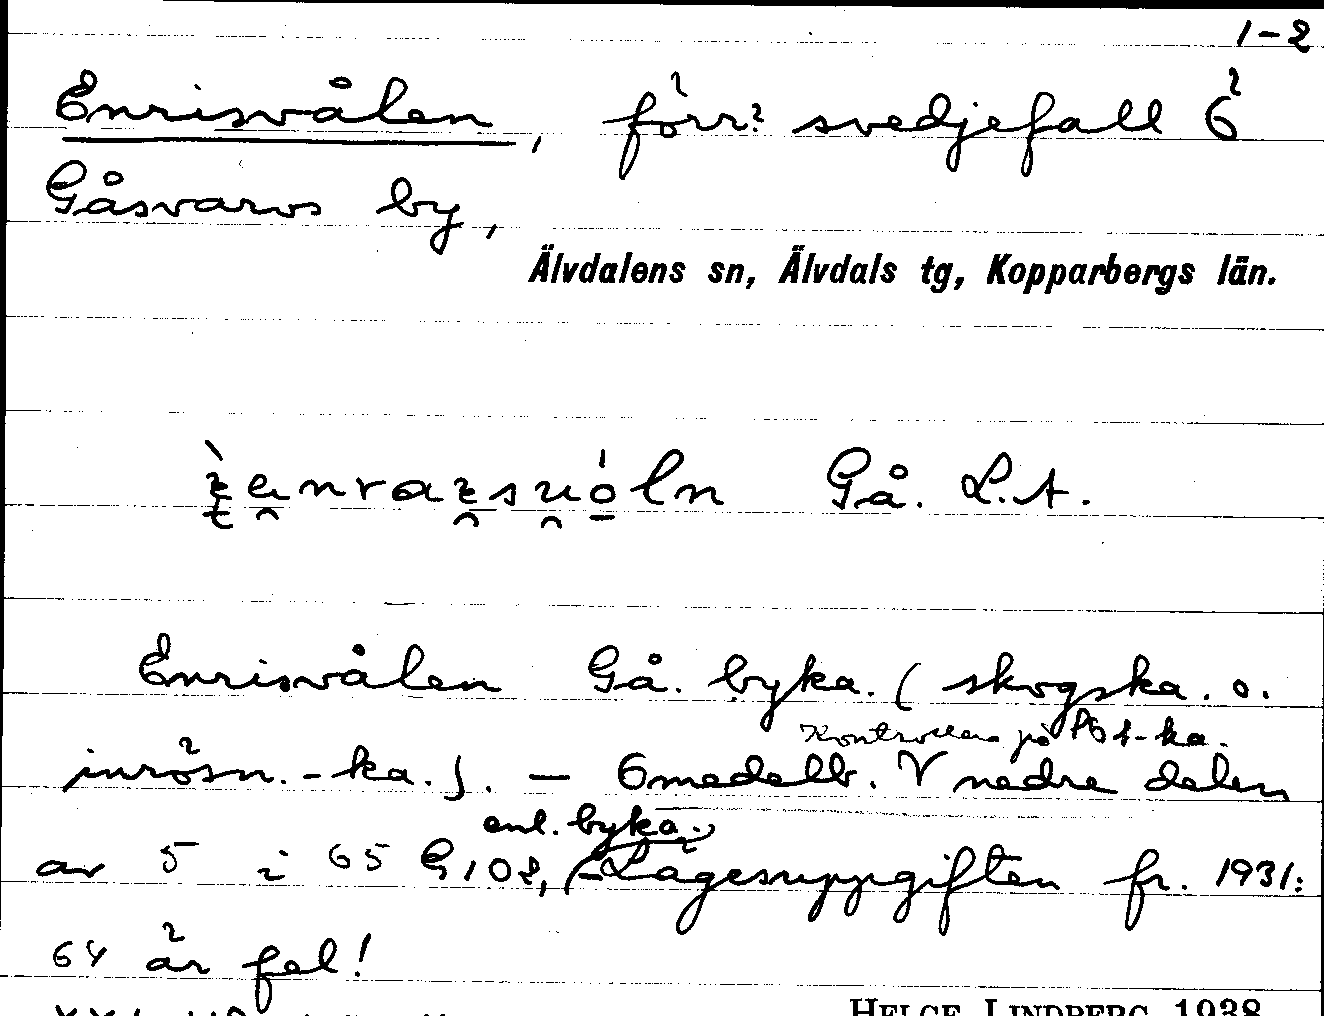 1-2
Enrisvålen, förr? svedjefall Ö
Gåsvarvs by,
Älvdalens sn, Älvdals tg, Kopparbergs län.
Gå. L.A.
Enrisvålen Gå. byka. (skogska. o.
Kontrollera på
inrösn.-ka.). — Ömedelb. V nedre delen
enl. byka.
av 5 i 65 G 108, Lägesuppgiften fr. 1931:
64 är fel!
HELGE LINDBERG 1938